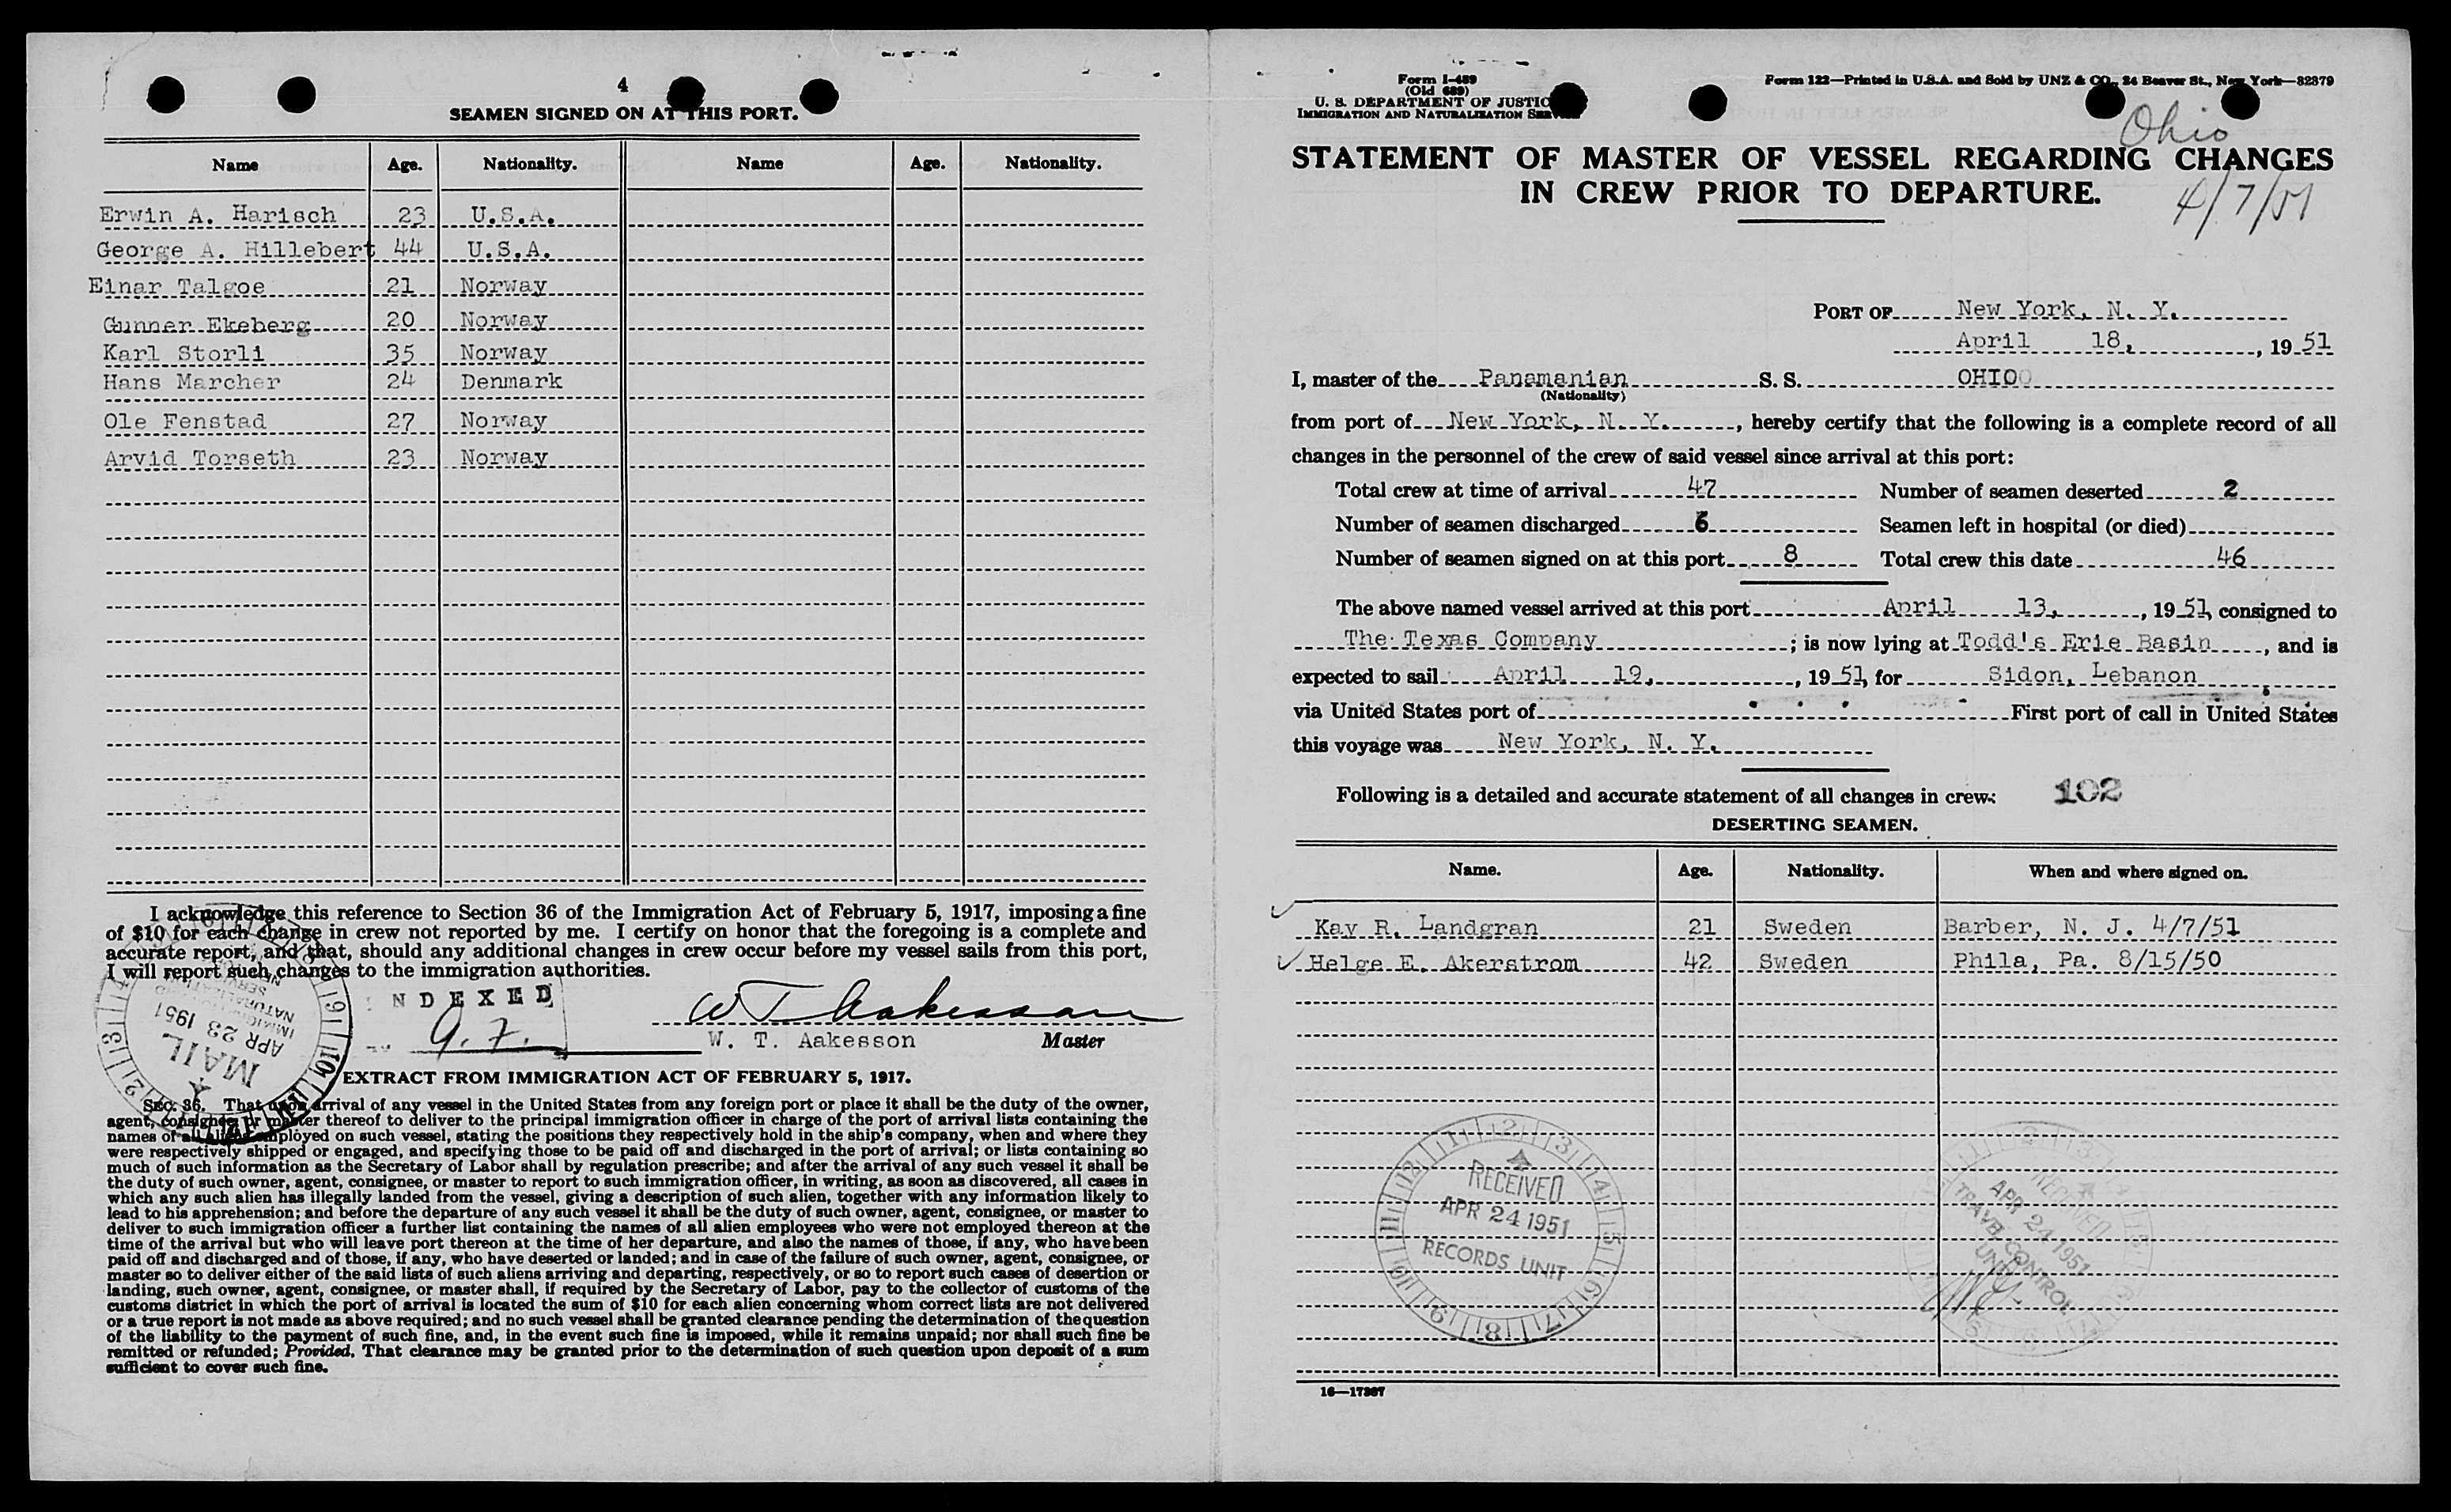 4
SEAMEN SIGNED ON AT THIS PORT.
Name Age. Nationality. Name Age. Nationality.
Erwin A. Harisch 23 U.S.A.
George A. Hillebert 44 U.S.A.
Einar Talgoe 21 Norway
Gunner Ekeberg 20 Norway
Karl Storli 35 Norway
Hans Marcher 24 Denmark
Ole Fenstad 27 Norway
Arvid Torseth 23 Norway
I acknowledge this reference to Section 36 of the Immigration Act of February 5, 1917, imposing a fine
of $10 for each change in crew not reported by me. I certify on honor that the foregoing is a complete and
accurate report, and that, should any additional changes in crew occur before my vessel sails from this port,
I will report such changes to the immigration authorities.
NDEXED
W T Aakesson
W. T. Aakesson Master
MAIL
APR 23 1951
EXTRACT FROM IMMIGRATION ACT OF FEBRUARY 5, 1917.
SEC. 36. That upon arrival of any vessel in the United States from any foreign port or place it shall be the duty of the owner,
agent, consignee, or master thereof to deliver to the principal immigration officer in charge of the port of arrival lists containing the
names of all aliens employed on such vessel, stating the positions they respectively hold in the ship's company, when and where they
were respectively shipped or engaged, and specifying those to be paid off and discharged in the port of arrival; or lists containing so
much of such information as the Secretary of Labor shall by regulation prescribe; and after the arrival of any such vessel it shall be
the duty of such owner, agent, consignee, or master to report to such immigration officer, in writing, as soon as discovered, all cases in
which any such alien has illegally landed from the vessel, giving a description of such alien, together with any information likely to
lead to his apprehension; and before the departure of any such vessel it shall be the duty of such owner, agent, consignee, or master to
deliver to such immigration officer a further list containing the names of all alien employees who were not employed thereon at the
time of the arrival but who will leave port thereon at the time of her departure, and also the names of those, if any, who have been
paid off and discharged and of those, if any, who have deserted or landed; and in case of the failure of such owner, agent, consignee, or
master so to deliver either of the said lists of such aliens arriving and departing, respectively, or so to report such cases of desertion or
landing, such owner, agent, consignee, or master shall, if required by the Secretary of Labor, pay to the collector of customs of the
customs district in which the port of arrival is located the sum of $10 for each alien concerning whom correct lists are not delivered
or a true report is not made as above required; and no such vessel shall be granted clearance pending the determination of the question
of the liability to the payment of such fine, and, in the event such fine is imposed, while it remains unpaid; nor shall such fine be
remitted or refunded; Provided, That clearance may be granted prior to the determination of such question upon deposit of a sum
sufficient to cover such fine.
Form I-489
(Old 689)
U. S. DEPARTMENT OF JUSTIC
IMMIGRATION AND NATURALIZATION SERVICE
Form 122—Printed in U.S.A. and Sold by UNZ & CO., 24 Beaver St., New York—32379
Ohio
STATEMENT OF MASTER OF VESSEL REGARDING CHANGES
IN CREW PRIOR TO DEPARTURE.
4/7/51
PORT OF New York, N. Y.
April 18, , 19 51
I, master of the Panamanian S. S. OHIO
(Nationality)
from port of New York, N. Y. , hereby certify that the following is a complete record of all
changes in the personnel of the crew of said vessel since arrival at this port:
Total crew at time of arrival 47 Number of seamen deserted 2
Number of seamen discharged 6 Seamen left in hospital (or died)
Number of seamen signed on at this port 8 Total crew this date 46
The above named vessel arrived at this port April 13, , 19 51, consigned to
The Texas Company ; is now lying at Todd's Erie Basin , and is
expected to sail April 19, , 19 51, for Sidon, Lebanon
via United States port of First port of call in United States
this voyage was New York, N. Y.
Following is a detailed and accurate statement of all changes in crew: 102
DESERTING SEAMEN.
Name. Age. Nationality. When and where signed on.
Kay R. Landgran 21 Sweden Barber, N. J. 4/7/51
Helge E. Akerstrom 42 Sweden Phila, Pa. 8/15/50
RECEIVED
APR 24 1951
RECORDS UNIT
RECEIVED
APR 24 1951
TRAVEL CONTROL
UNIT
16—17367